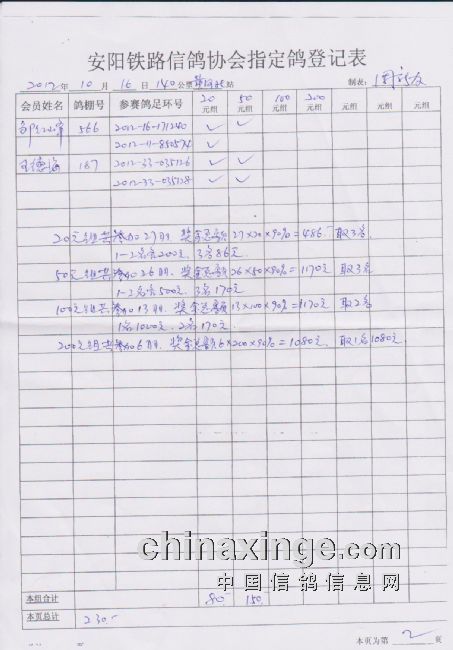 安阳铁路信鸽协会指定鸽登记表
2012年 10月 16日 140公里 站 制表:
会员姓名 鸽棚号 参赛鸽足环号 20元组 50元组 100元组 200元组 元组 元组 元组
566 2012-16-171240 ✓ ✓
2012-11-850574 ✓
王德海 187 2012-33-035126 ✓ ✓
2012-33-035128 ✓ ✓
20元组共参加27羽, 奖金总额27×20×90%=486. 取3名
1-2名各200元, 3名86元
50元组共参加26羽, 奖金总额26×50×90%=1170元 取3名
1-2名各500元, 3名170元
100元组共参加13羽, 奖金总额13×100×90%=1170元 取2名
1名1000元, 2名170元
200元组共参加6羽, 奖金总额6×200×90%=1080元, 取1名1080元
chinaxinge.com
中国信鸽信息网
本组合计 80 150
本页总计 230
本页为第 2 页